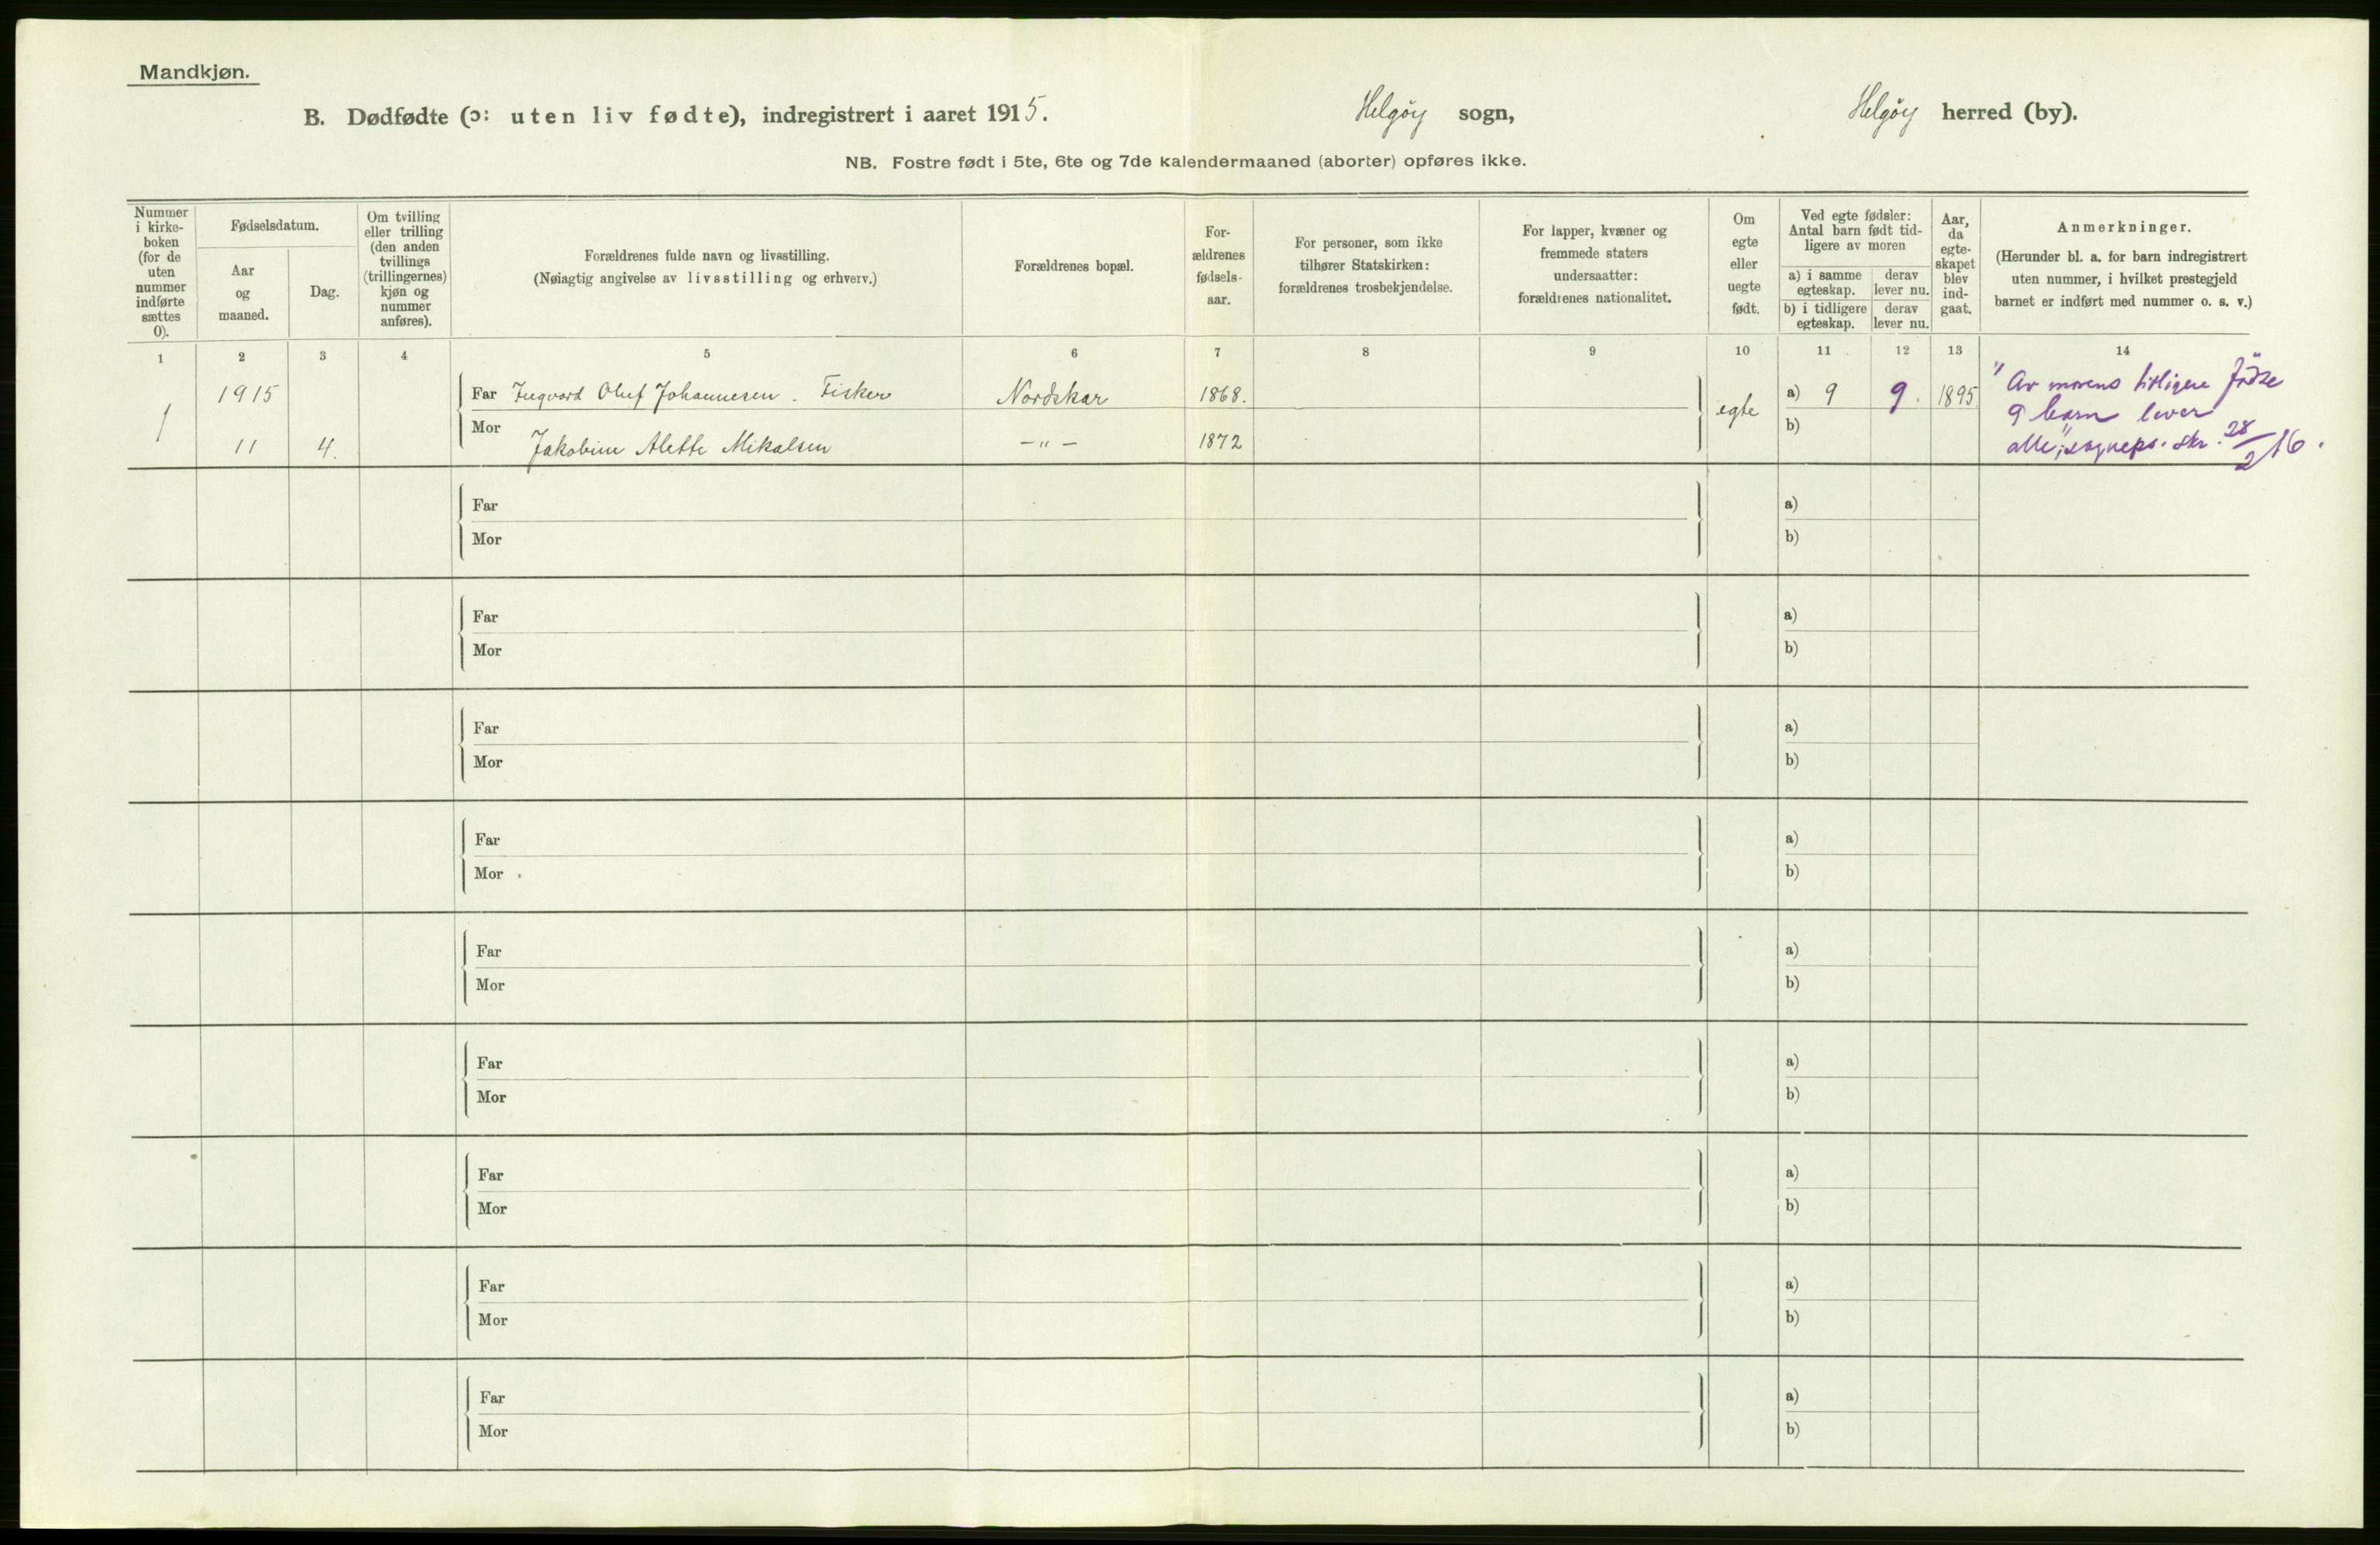 Mandkjøn.
B. Dødfødte (ɔ: uten liv fødte), indregistrert i aaret 1915.
Helgøy sogn,
Helgøy herred (by).
NB. Fostre født i 5te, 6te og 7de kalendermaaned (aborter) opføres ikke.
Nummer
i kirke-
boken
(for de
uten
nummer
indførte
sættes
0).
Fødselsdatum.
Aar
og
maaned.
Dag.
Om tvilling
eller trilling
(den anden
tvillings
(trillingernes)
kjøn og
nummer
anføres).
Forældrenes fulde navn og livsstilling.
(Nøiagtig angivelse av livsstilling og erhverv.)
Forældrenes bopæl.
For-
ældrenes
fødsels-
aar.
For personer, som ikke
tilhører Statskirken:
forældrenes trosbekjendelse.
For lapper, kvæner og
fremmede staters
undersaatter:
forældrenes nationalitet.
Om
egte
eller
uegte
født.
Ved egte fødsler:
Antal barn født tid-
ligere av moren
a) i samme
egteskap.
derav
lever nu.
b) i tidligere
egteskap.
derav
lever nu.
Aar,
da
egte-
skapet
blev
ind-
gaat.
Anmerkninger.
(Herunder bl. a. for barn indregistrert
uten nummer, i hvilket prestegjeld
barnet er indført med nummer o. s. v.)
1 2 3 4 5 6 7 8 9 10 11 12 13 14
1
1915
11 4.
Far Ingvard Oluf Johannesen. Fisker Nordskar 1868.
Mor Jakobine Alette Mikalsen -"- 1872
egte
a) 9 9. 1895
b)
"Av morens tidligere fødte
9 barn lever
alle"; sogneps. skr. 28/2 16.
Far a)
Mor b)
Far a)
Mor b)
Far a)
Mor b)
Far a)
Mor b)
Far a)
Mor b)
Far a)
Mor b)
Far a)
Mor b)
Far a)
Mor b)
Far a)
Mor b)